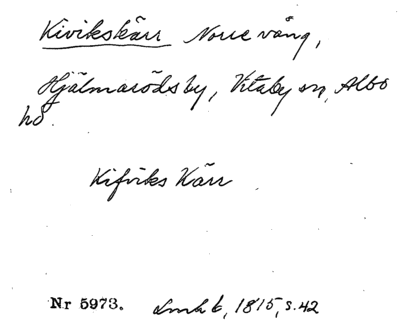 Kivikskärr Norre vång,
Hjälmarödsby, Vitaby sn, Albo
hd.
Kifviks Kärr
Nr 5973. Lmh b, 1815, s. 42